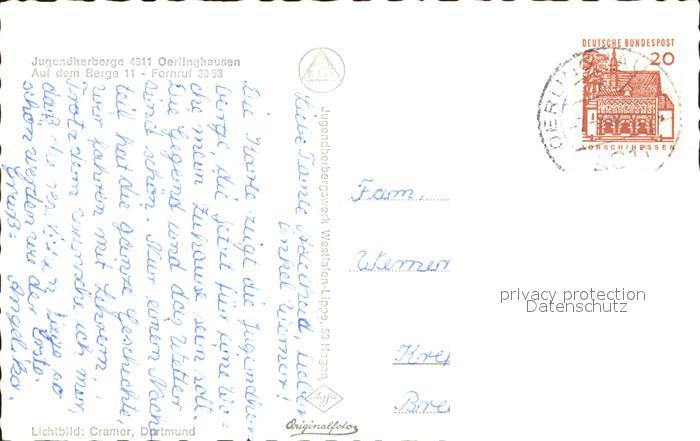 Jugendherberge 4811 Oerlinghausen
Auf dem Berge 11 - Fernruf 20 53
DEUTSCHE BUNDESPOST
20
LORSCH/HESSEN
Jugendherbergswerk Westfalen-Lippe, 58 Hagen
Liebe Tante Adelheid, lieber
Onkel Werner!
Die Karte zeigt die Jugendher-
berge, die jetzt für eine Wo-
che mein Zuhause sein soll.
Die Gegend und das Wetter
sind schön. Nur einen Nach-
teil hat die ganze Geschichte,
wir fahren mit Lehrern.
Trotzdem wünsche ich mir,
daß die so
schön werden wie der Erste.
Gruß:
Angelika.
Fam.
Werner
Kre
Bre
privacy protection
Datenschutz
Agfa
Originalfoto
Lichtbild: Cramer, Dortmund